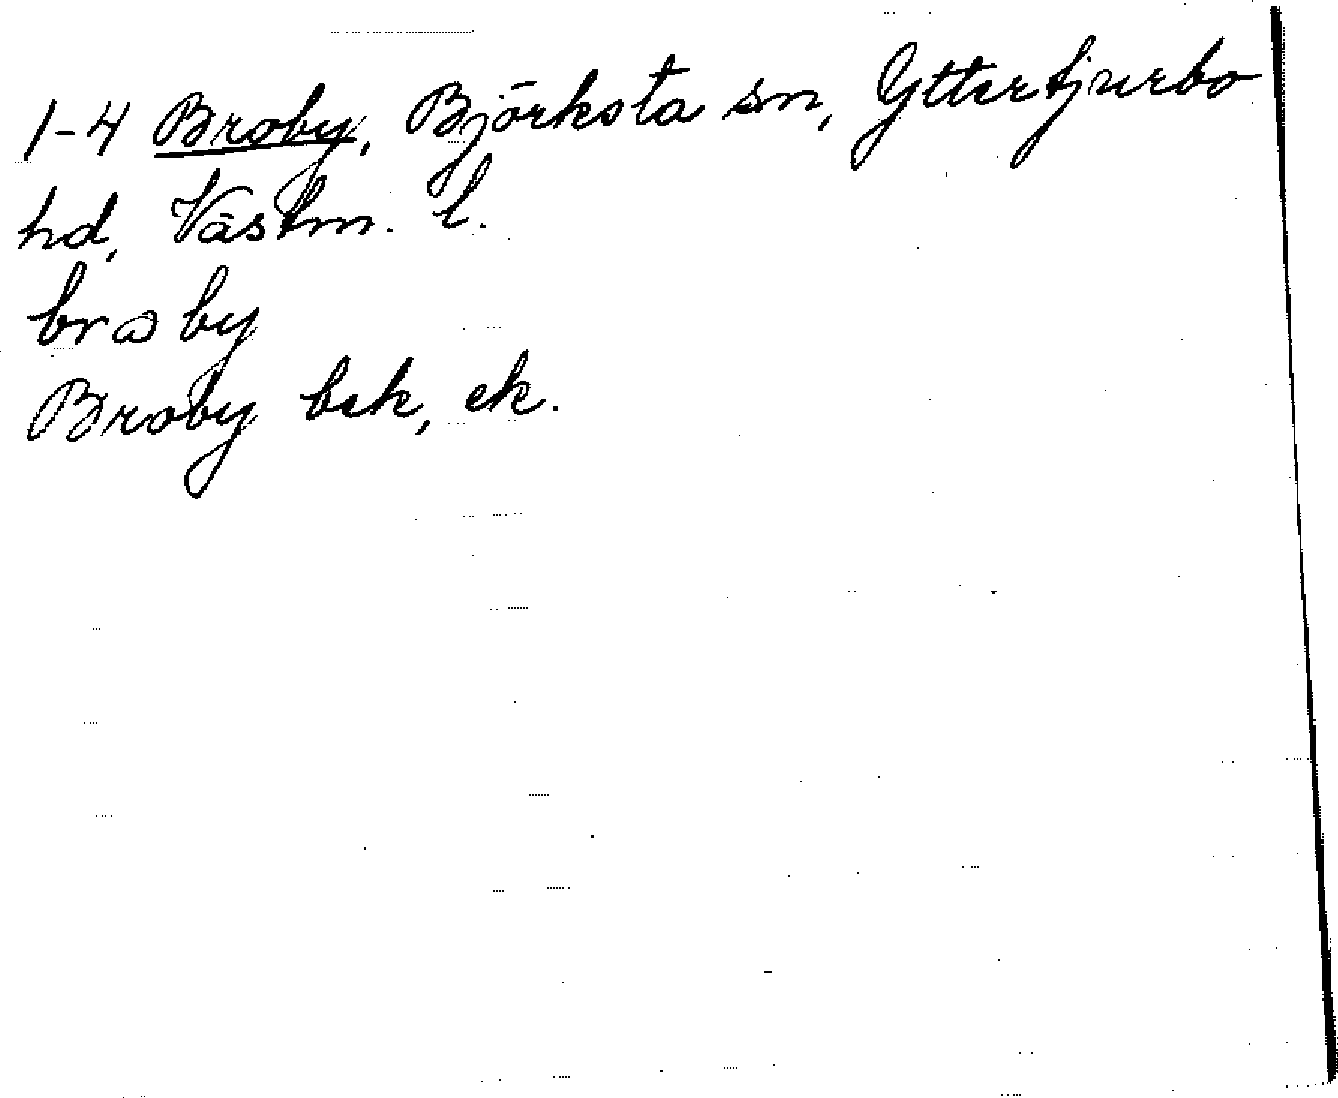 1-4 Broby, Björksta sn, Yttertjurbo
hd, Västm. l.
broby
Broby bek, ek.